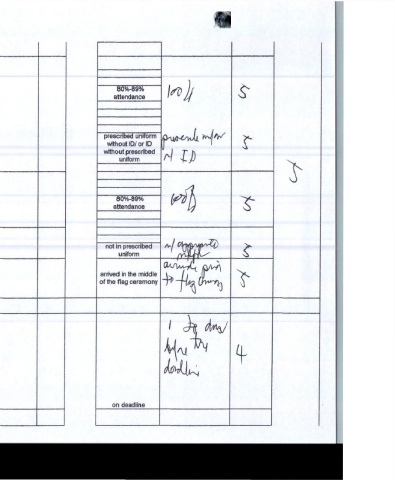 80%-89%
attendance
100%
5
prescribed uniform
without ID/ or ID
without prescribed
uniform
w/ ID
5
5
80%-89%
attendance
100%
5
not in prescribed
uniform
w/ appropriate
5
arrived in the middle
of the flag ceramony
prior
to flag
5
1 day
before the
deadline
4
on deadline